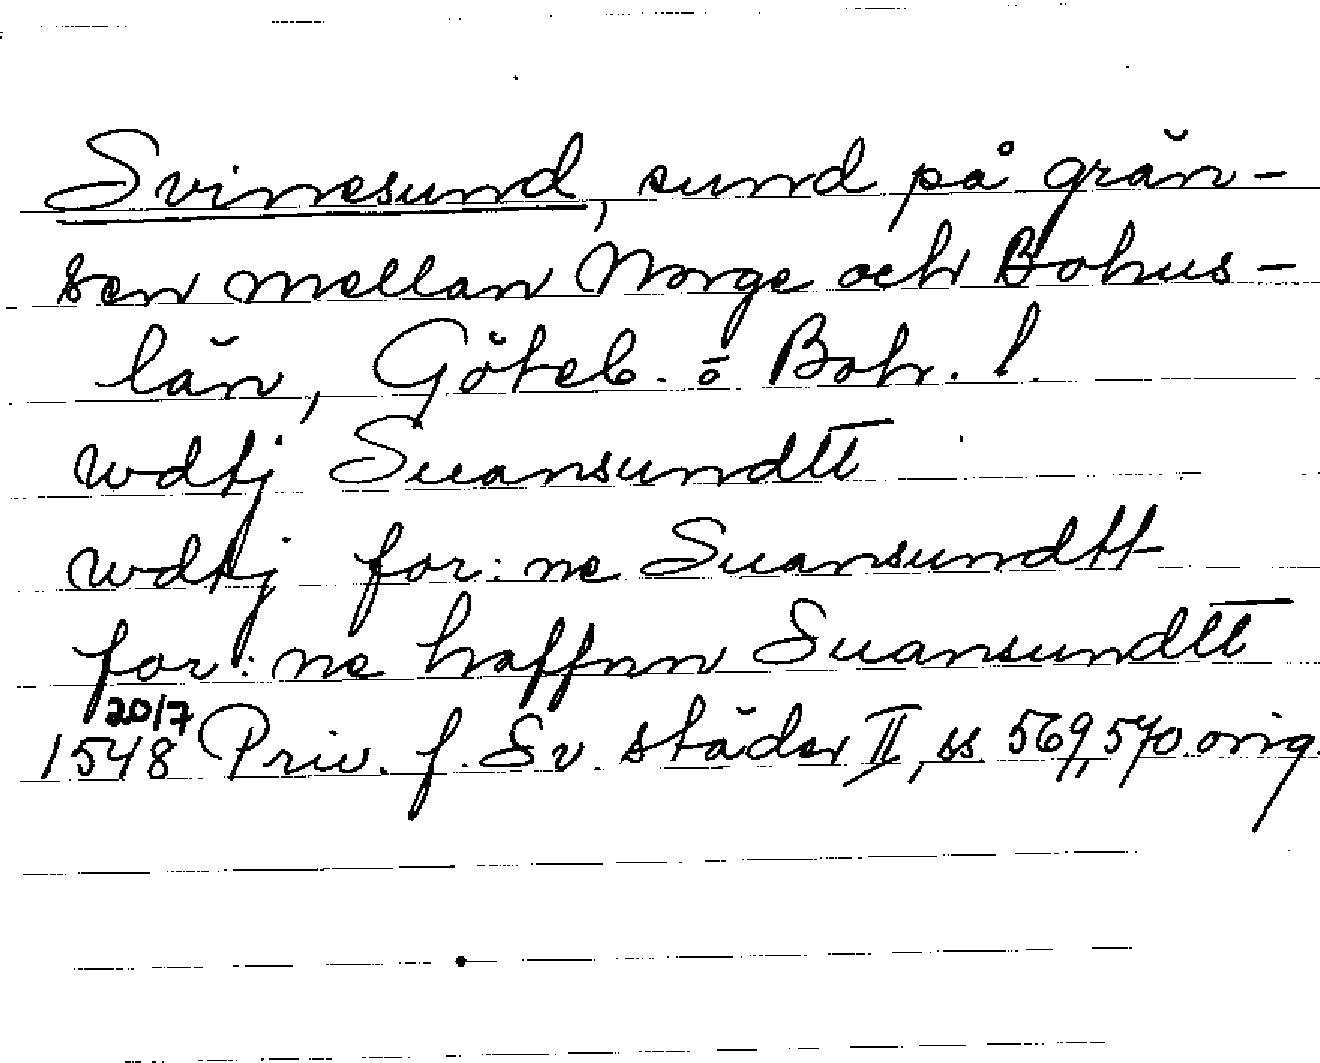 Svinesund, sund på grän-
sen mellan Norge och Bohus-
län, Göteb. o Boh. l.
wdtj Suansundtt
wdtj for:ne Suansundtt
for:ne haffnn Suansundtt
20/7
1548 Priv. f. Sv. städer II, ss 569, 570. orig.